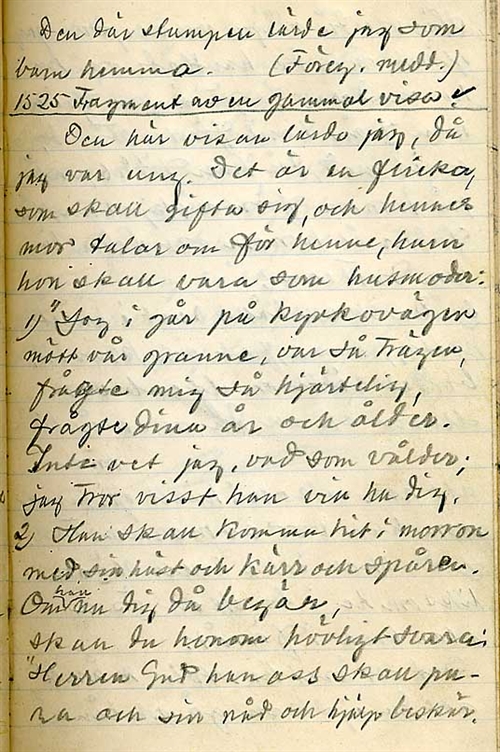 Den där stumpen lärde jag som
barn hemma. (Föreg. medd.)
1525 Fragment av en gammal visa.
Den här visan lärde jag, då
jag var ung. Det är en flicka,
som skall gifta sig, och hennes
mor talar om för henne, hur
hon skall vara som husmoder:
1) "Jag i går på kyrkovägen
mött vår granne, var så trägen,
frågte mig så hjärtelig,
frågte dina år och ålder.
Inte vet jag, vad som vålder;
jag tror visst han vill ha dig.
2) Han skall komma hit i morron
med sin häst och kärr och spåren.
Om han nu dig då begär,
skall du honom hövligt svara:
"Herren Gud han oss skall pa-
ra och sin nåd och hjälp beskär.